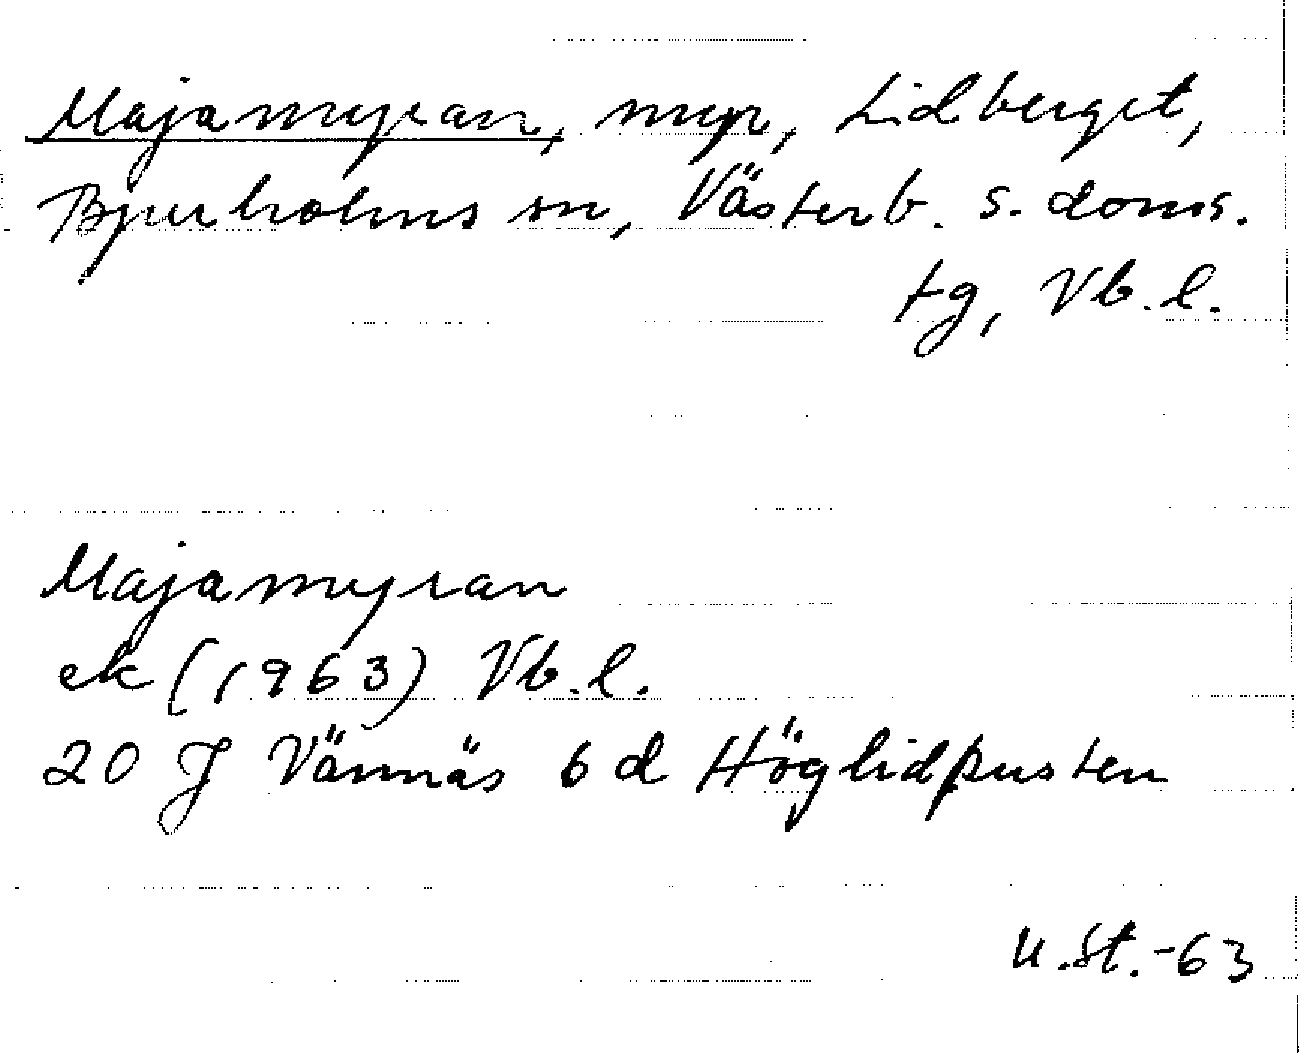 Majamyran, myr, Lidberget,
Bjurholms sn, Västerb. s. doms.
tg, Vb. l.
Majamyran
ek (1963) Vb. l.
20 J Vännäs 6 d Höglidpusten
U. St. -63